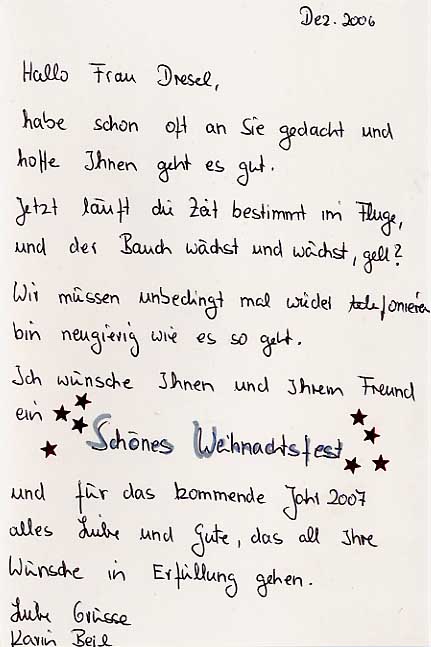 Dez. 2006
Hallo Frau Dresel,
habe schon oft an Sie gedacht und
hoffe Ihnen geht es gut.
Jetzt läuft die Zeit bestimmt im Fluge,
und der Bauch wächst und wächst, gell?
Wir müssen unbedingt mal wieder telefonieren
bin neugierig wie es so geht.
Ich wünsche Ihnen und Ihrem Freund
ein
Schönes Weihnachtsfest
und für das kommende Jahr 2007
alles Liebe und Gute, das all Ihre
Wünsche in Erfüllung gehen.
Liebe Grüsse
Karin Beil